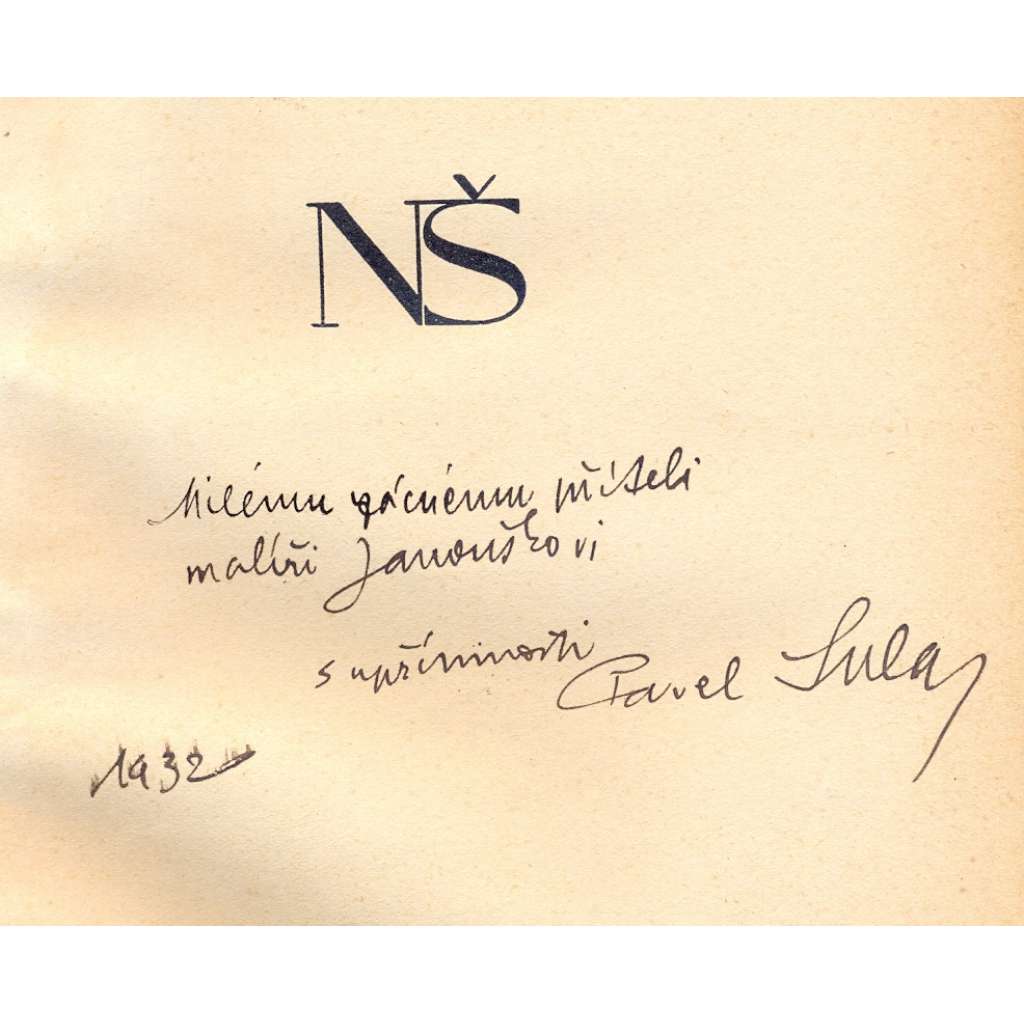 NŠ
Milému vzácnému příteli
malíři Janouškovi
s upřímností
Pavel Sula
1932